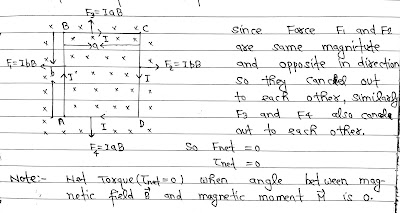 F3 = IaB
B C
I
a
F1=IbB
b
I
I
F2=IbB
A D
I
F4=IaB
since Force F1 and F2
are same magnitute
and opposite in direction
so they cancel out
to each other, similarly
F3 and F4 also cancle
out to each other.
So Fnet = 0
τnet = 0
Note:- Net Torque (τnet = 0) when angle between mag-
netic field B⃗ and magnetic moment M⃗ is 0.